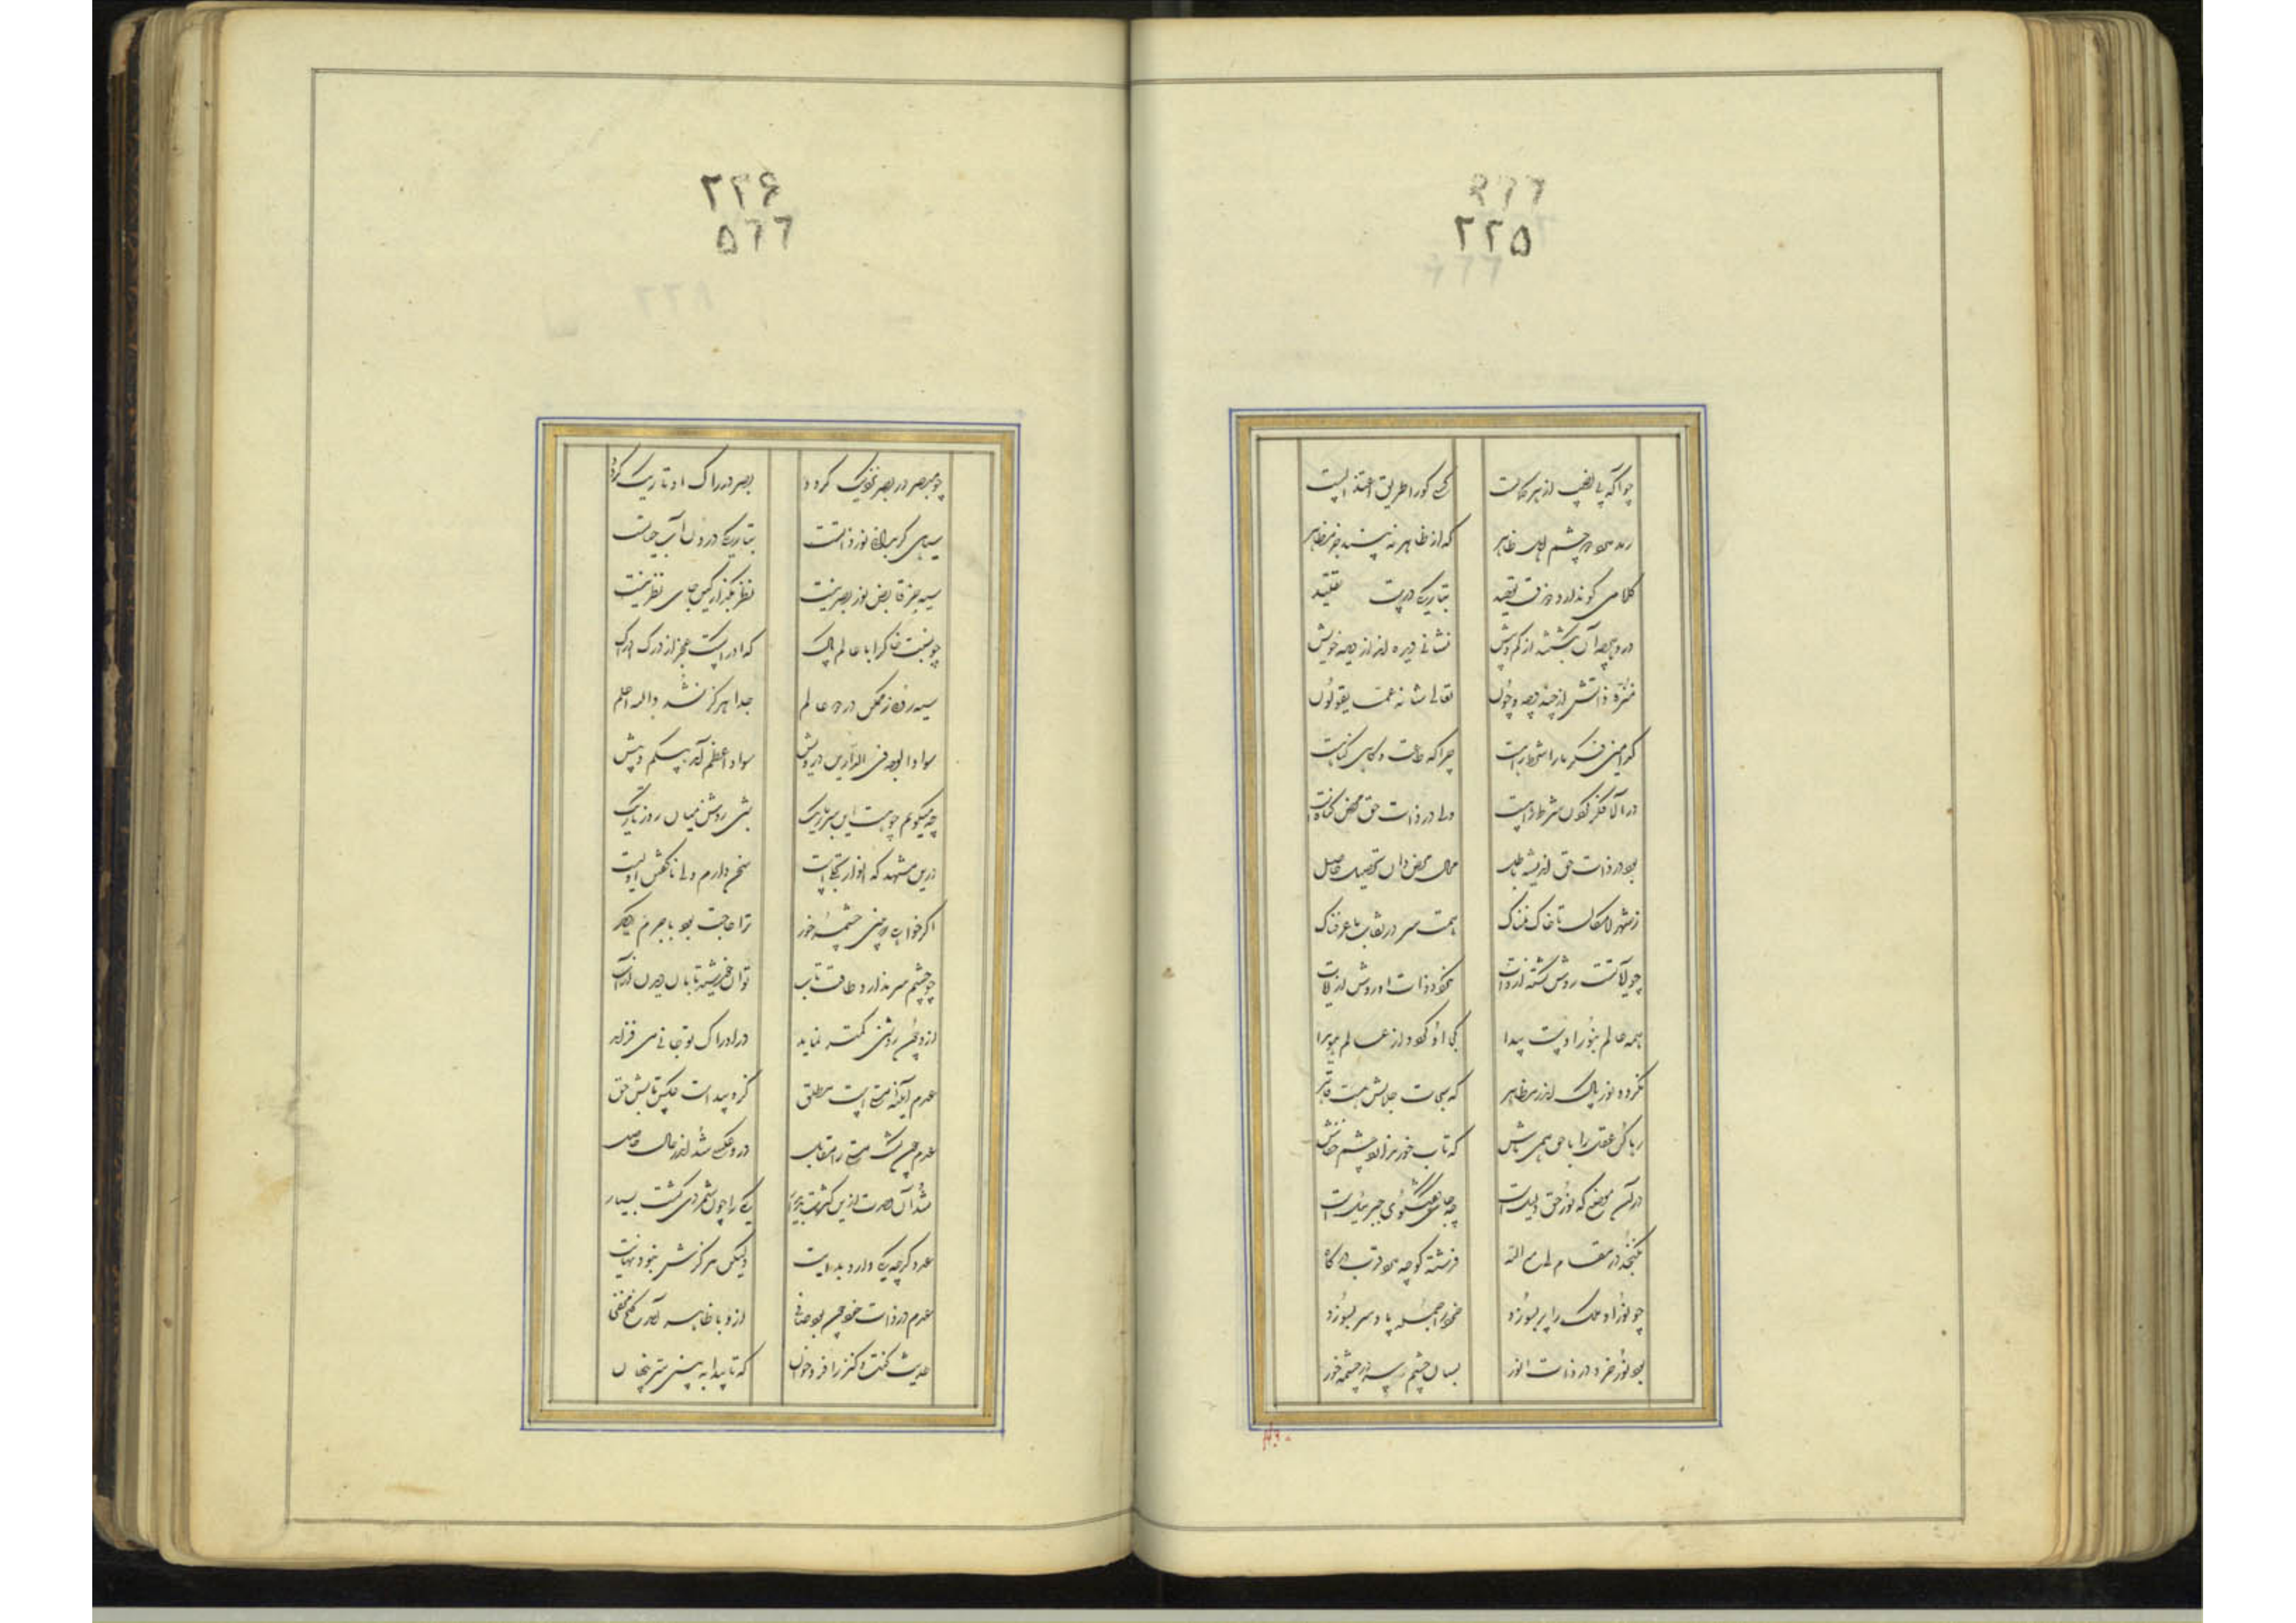 ۶۲۲
۲۲۵
چو اکمه بی نصیب از هر کمالست کسی کو را طریق اعتزالست
رمد چشم اهل ظاهر که از ظاهر نه بیند جز مظاهر
کلامی کو ندارد ذوق توحید بتاریکی درست تقلید
درو هرچه آن بگفتند از کم و بیش نشانی دیده اند از دیده خویش
منزه ذاتش از چند و چه و چون تعالی شانه عما یقولون
کدامین فکر ما را شرط راهست چرا که طاعت و گاهی گناهست
در آلا فکر کردن شرط راهست ولی در ذات حق محض گناهست
بود در ذات حق اندیشه باطل محال محض دان تحصیل حاصل
ز شهر لامکان تا خاک نمناک همت سر در نقاب ما عرفناک
چو آیاتست روشن گشته از ذات نکردد ذات او روشن از آیات
همه عالم بنور اوست پیدا کجا او کردد از عالم هویدا
نکردد نور پاک اندر مظاهر که سبحات جلالش هست قاهر
رها کن عقل را با حق همی باش که تاب خور ندارد چشم خفاش
در آن موضع که نور حق دلیلست چه جای گفتگوی جبرئیلست
نکنجد در مقام لی مع الله فرشته کرچه دارد قرب درکاه
چو نور او ملک را پر بسوزد خرد را جمله پا و سر بسوزد
بود نور خرد در ذات انور بسان چشم سر در چشمه خور
۲۲۶
۵۲۲
چو مبصر در بصر نزدیک کردد بصر ز ادراک او تاریک کردد
سیاهی کر بدانی نور ذاتست بتاریکی درون آب حیاتست
سیه جز قابض نور بصر نیست نظر بکذار کین جای نظر نیست
چو نسبت خاک را با عالم پاک که ادراکست عجز از درک ادراک
سیه روئی ز ممکن در دو عالم جدا هرکز نشد والله اعلم
سواد الوجه فی الدارین درویش سواد اعظم آمد بی کم و بیش
چه میکویم چو هست این سر باریک شبی روشن میان روز تاریک
درین مشهد که انوار تجلیست سخن دارم ولی ناکفتن اولیست
اکر خواهی که بینی چشمه خور ترا حاجت بود با جرم دیکر
چو چشم سر ندارد طاقت تاب توان خورشید تابان دیدن از آب
ازو چون روشنی کمتر نماید در ادراک تو حالی می فزاید
عدم آینه هستی است مطلق کزو پیداست عکس تابش حق
عدم چون کشت هستی را مقابل درو عکسی شد اندر حال حاصل
شد آن وحدت ازین کثرت پدیدار یکی را چون شمردی کشت بسیار
عدد کرچه یکی دارد بدایت ولیکن هرکزش نبود نهایت
عدم در ذات خود چون بود صافی ازو با ظاهر آمد کنج مخفی
حدیث کنت کنزا را فرو خوان که تا پیدا به بینی سر پنهان